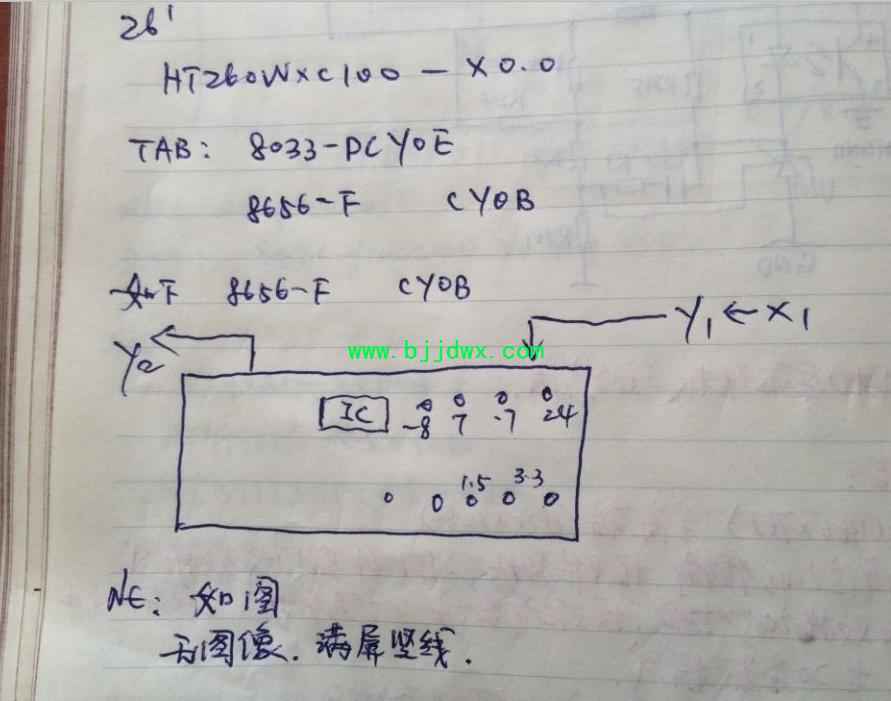 26'
HT260WXC100-X0.0
TAB: 8033-DCY0E
8656-F CY0B
如下 8656-F CY0B
Y2 Y1←X1
www.bjjdwx.com
IC
-8 7 -7 24
1.5 3.3
NE: 如图
无图像.满屏竖线.